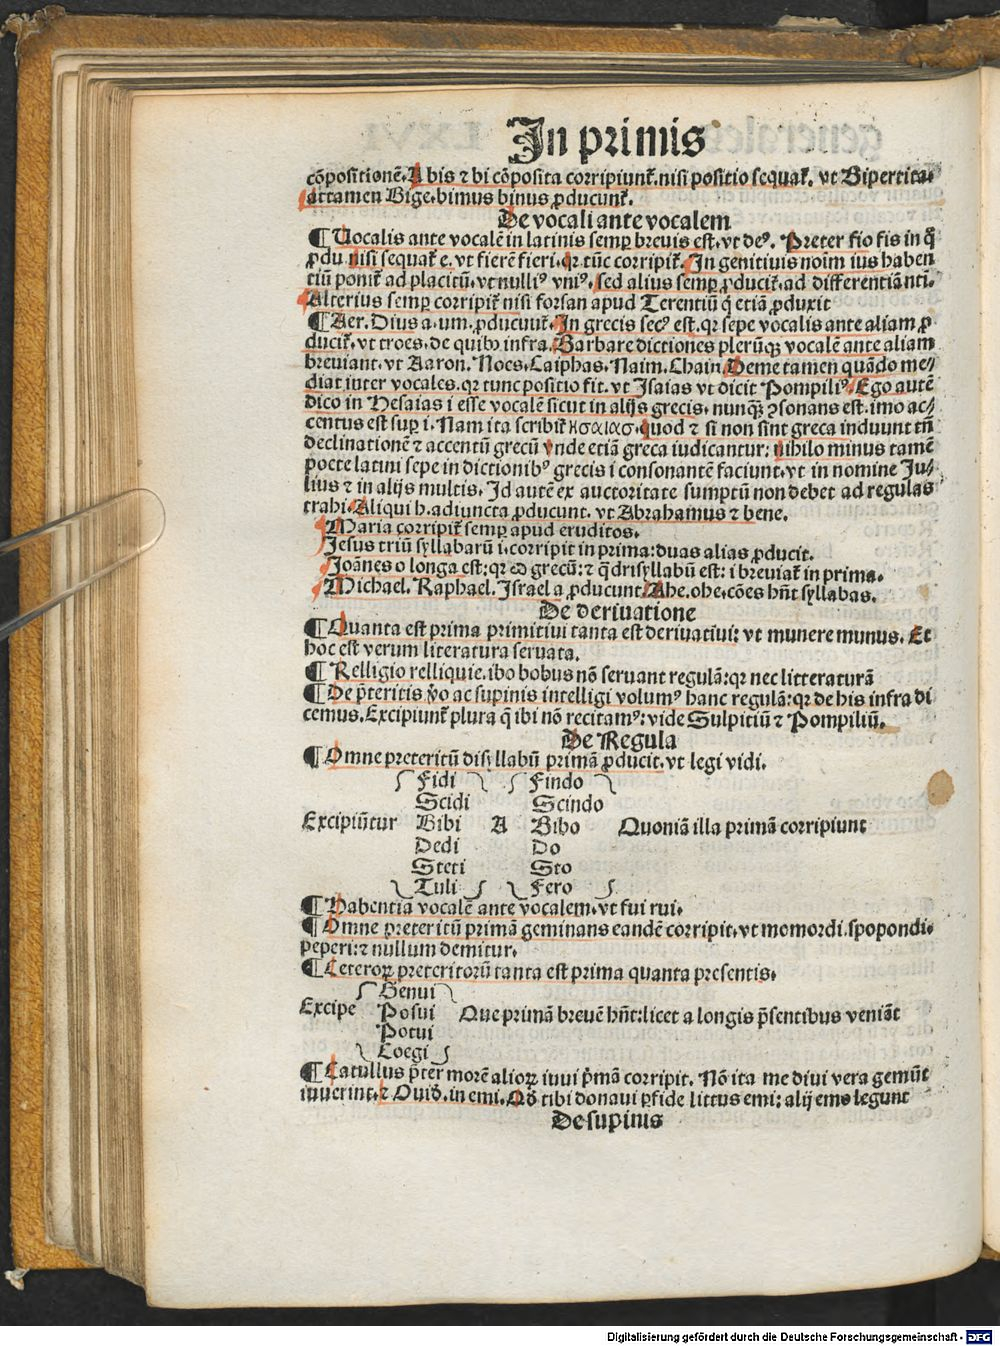 In primis
cōpositionē. A bis ⁊ bi cōposita corripiunt᷑. nisi positio sequat᷑. vt Bipertita.
attamen Bige. bimus binus ꝓducunt᷑.
De vocali ante vocalem
¶ Uocalis ante vocalē in latinis semꝑ brevis est. vt deꝰ. Preter fio fis in q̄
ꝓdu nisi sequat᷑ e. vt fierē fieri. qꝛ tūc corripit᷑. In genitivis noīm ius haben
tiū ponit᷑ ad placitū. vt nulliꝰ vniꝰ. sed alius semꝑ ꝓducit᷑. ad differentiā nti.
Alterius semꝑ corripit᷑ nisi forsan apud Terentiū q̄ etiā ꝓduxit
¶ Aer. Dius a. um. ꝓducunt᷑. In grecis secꝰ est. qꝛ sepe vocalis ante aliam ꝓ
ducit᷑. vt troes. de quibꝰ infra. Barbare dictiones plerūqꝫ vocalē ante aliam
breviant. vt Aaron. Noes. Caiphas. Naim. Chain. Deme tamen quādo me⸗
diat inter vocales. qꝛ tunc positio fit. vt Isaias vt dicit Pompiliꝰ. Ego autē
dico in Hesaias i esse vocalē sicut in alijs grecis. nunqꝫ ꝯsonans est. imo ac⸗
centus est suꝑ i. Nam ita scribit᷑ ησαιασ. quod ⁊ si non sint greca induunt tn̄
declinationē ⁊ accentū grecū vnde etiā greca iudicantur: nihilo minus tamē
poete latini sepe in dictionibꝰ grecis i consonantē faciunt. vt in nomine Ju⸗
lius ⁊ in alijs multis. Id autē ex auctoritate sumptū non debet ad regulas
trahi. Aliqui h. adiuncta ꝓducunt. vt Abrahamus ⁊ bene.
Maria corripit᷑ semꝑ apud eruditos.
Jesus triū syllabarū i. corripit in prima: duas alias ꝓducit.
Joānes o longa est: qꝛ ω grecū: ⁊ q̄drisyllabū est: i breviat᷑ in prima.
Michael. Raphael. Israel a ꝓducunt. Ahe. ohe. cōes hn̄t syllabas.
De derivatione
¶ Quanta est prima primitivi tanta est derivativi: vt munere munus. Et
hoc est verum literatura servata.
¶ Relligio relliquie. ibo bobus nō servant regulā: qꝛ nec litteraturā
¶ De p̄teritis v̄o ac supinis intelligi volumꝰ hanc regulā: qꝛ de his infra di
cemus. Excipiunt᷑ plura q̄ ibi nō recitamꝰ: vide Sulpitiū ⁊ Pompiliū.
De Regula
¶ Omne preteritū disyllabū primā ꝓducit. vt legi vidi.
Fidi Findo
Scidi Scindo
Excipiūtur Bibi A Bibo Quoniā illa primā corripiunt
Dedi Do
Steti Sto
Tuli Fero
¶ Habentia vocalē ante vocalem. vt fui rui.
¶ Omne preteritū primā geminans eandē corripit. vt momordi. spopondi.
peperi: ⁊ nullum demitur.
¶ Ceteroꝝ preteritorū tanta est prima quanta presentis.
Genui
Excipe Posui Que primā brevē hn̄t: licet a longis p̄sentibus veniāt
Potui
Coegi
¶ Catullus p̄ter morē alioꝝ iuvi p̄mā corripit. Nō ita me divi vera gemūt
iuverint. ⁊ Ovid̄. in emi. Qd̄ tibi donavi ꝑfide littus emi: alij emo legunt
De supinis
Digitalisierung gefördert durch die Deutsche Forschungsgemeinschaft - DFG